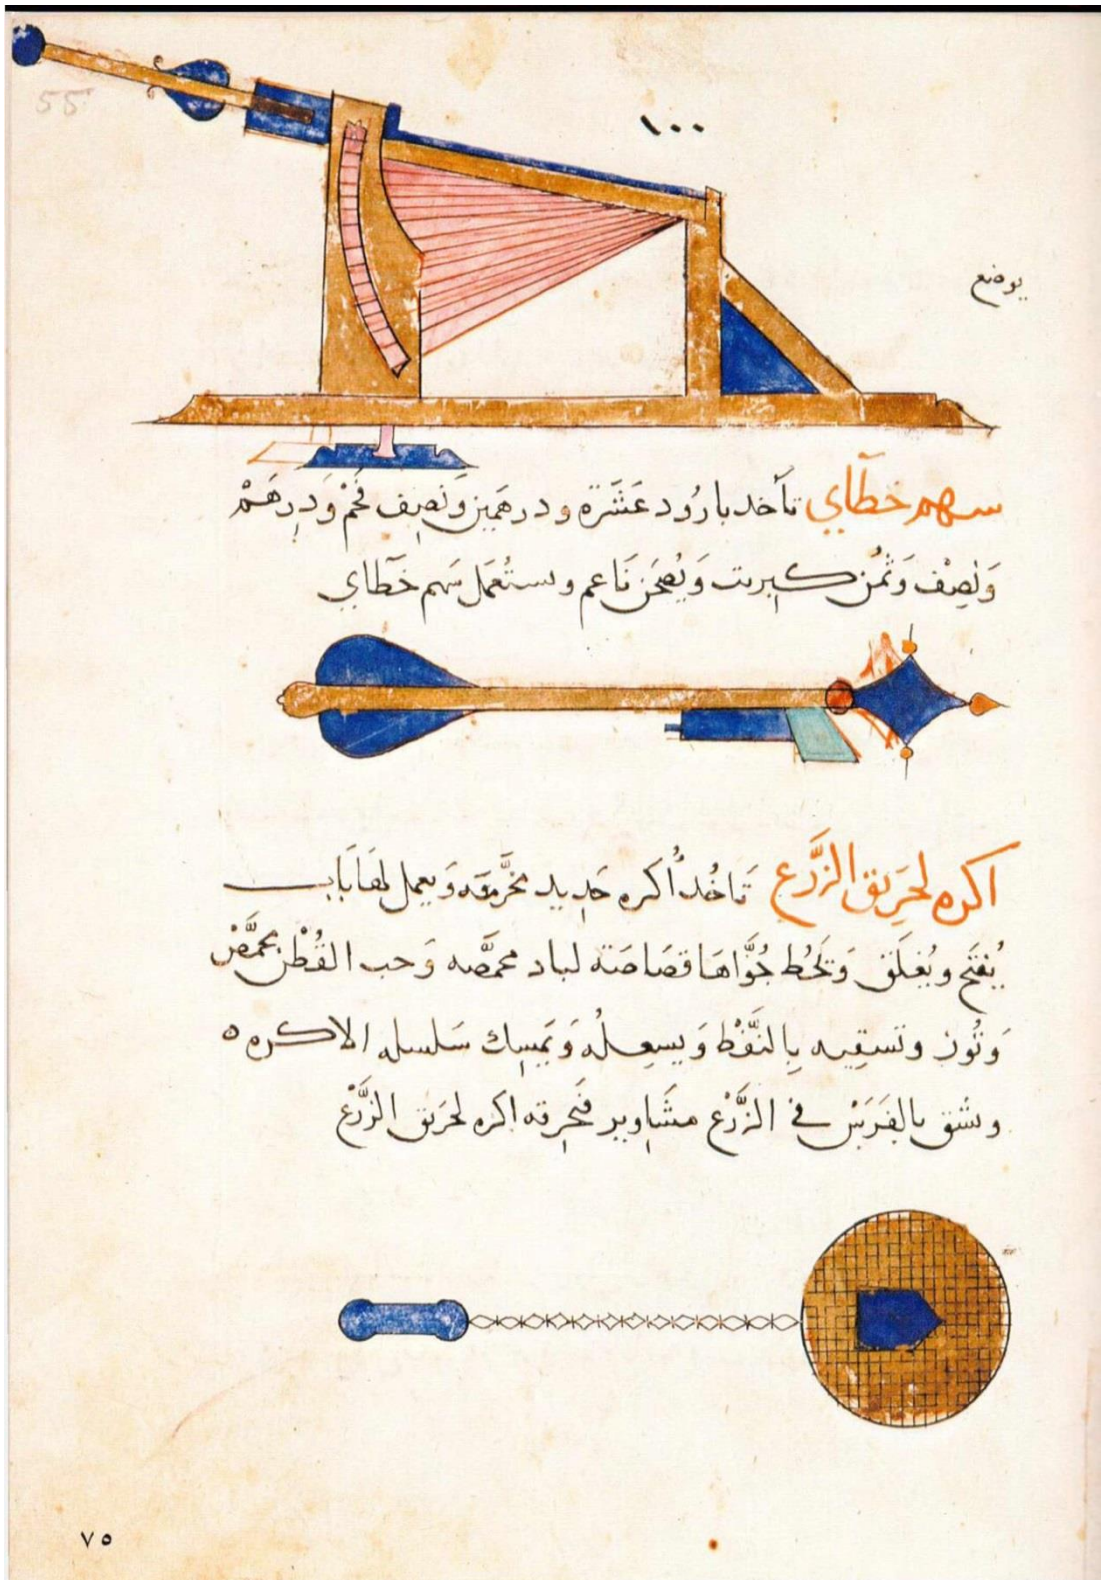 55
١٠٠
يوضع
سهم خطاي تأخد بارُود عَشَرَة ودرهَمين وَنصِف فَحْم وَدِرهَمْ
وَنصِفْ وَثمُن كبريت وَيُصحَن نَاعم ويستُعمَل سَهم خَطاي
اكره لحَرِيق الزَّرع تَاخُد أُكره حَدِيد مخرَّمه وَيعمل لهَا بَابـــ
يُفتَح ويُغلَق وَتحُط جُوَّاهَا قصَاصَة لباد محمصَّه وَحب القُطْن محمَّصْ
وَتُون وتسقِيه بِالنَّفْط وَيسعِلُه وَيَمسِك سَلسله الاكره ٥
وشق بالفَرَسْ في الزَّرْع مشَاوير فَتحِرقه اكره لحَرِيق الزَّرْع
٧٥